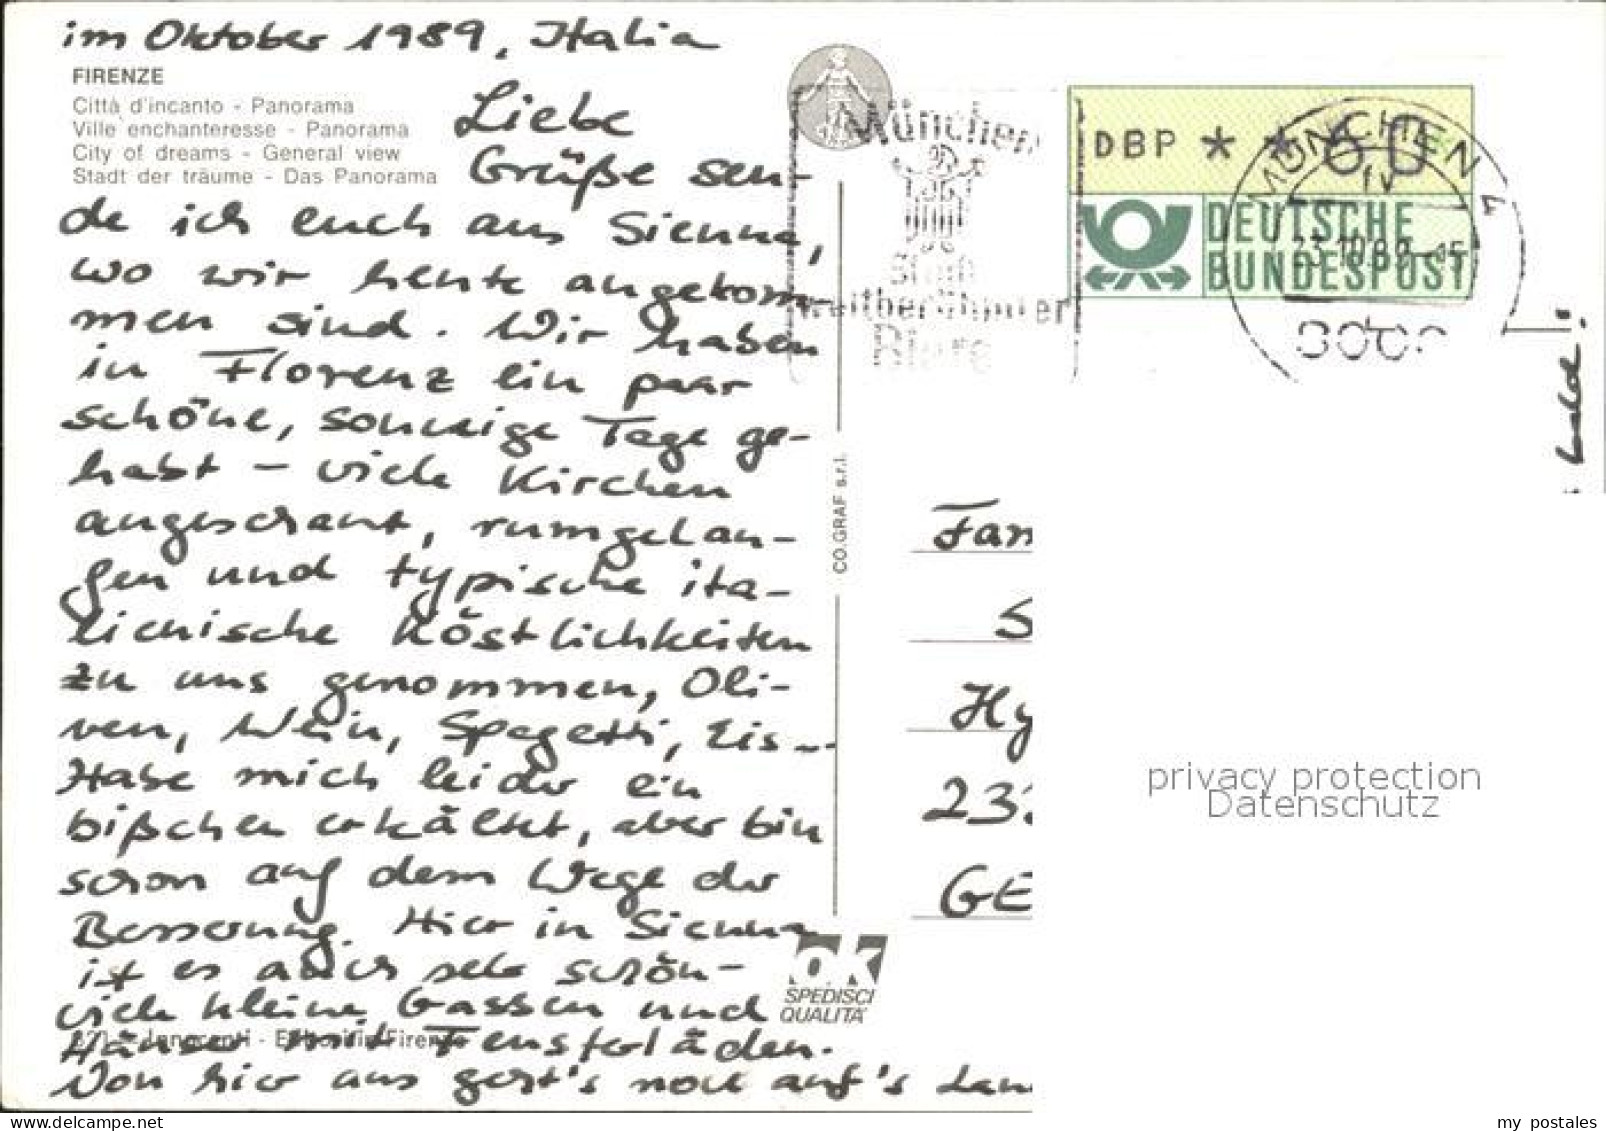 im Oktober 1989, Italia
FIRENZE
Città d'incanto - Panorama
Ville enchanteresse - Panorama
City of dreams - General view
Stadt der träume - Das Panorama
Liebe
Grüße sen-
de ich euch aus Sienna,
wo wir heute angekom-
men sind. Wir haben
in Florenz ein paar
schöne, sonneige Tage ge-
habt - viele Kirchen
angeschaut, rumgelau-
fen und typische ita-
lienische Köstlichkeiten
zu uns genommen, Oli-
ven, Wein, Spagetti, Eis...
Habe mich leider ein
bißchen erkältet, aber bin
schon auf dem Wege der
Besserung. Hier in Sienna
ist es auch sehr schön-
viele kleine Gassen und
Häuser mit Fensterläden.
Von hier aus geht's noch auf's Lan
bald!
CO.GRAF s.r.l.
OK
SPEDISCI
QUALITA'
Innocenti - Firenze
München
DBP * * 60
DEUTSCHE
BUNDESPOST
MÜNCHEN 4
23.10.89-15
Fam
S
Hy
233
GE
privacy protection
Datenschutz
my postales
www.delcampe.net